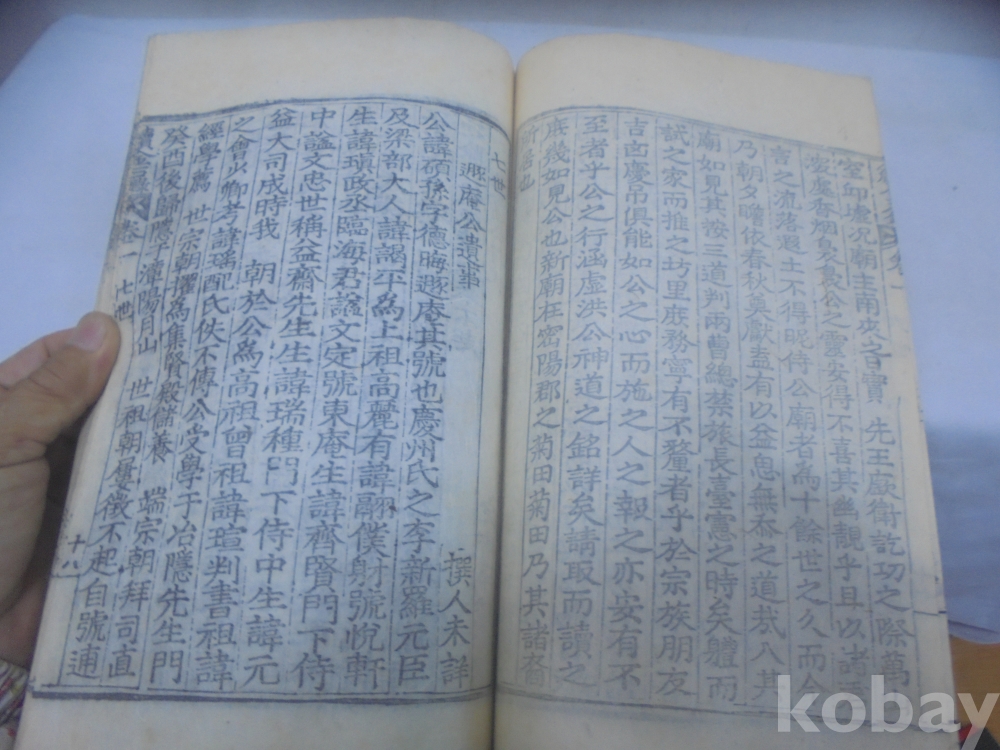 空卽虛況朝主兩皮之日實 先王厥衛訖功之際萬
吉之流落遐土不得昵侍公廟者爲十餘世之久而今
乃朝夕瞻依春秋奠獻盍有以益思無忝之道哉八其
廟如見其按三道判兩曹總禁旅長臺憲之時矣軆而
試之家而推之坊里庶務寧有不釐者乎於宗族朋友
吉凶慶吊俱能如公之心而施之人之報之亦安有不
至者乎公之行涵虛洪公神道之銘詳矣請取而讀之
庶幾如見公也新廟在密陽郡之菊田菊田乃其諸裔
所居也
七世
遯庵公遺事
撰人未詳
公諱碩孫字德晦遯庵其號也慶州氏之李新羅元臣
及梁部大人諱謁平爲上祖高麗有諱翮僕射號悅軒
生諱瑱政丞臨海君謚文定號東庵生諱齊賢門下侍
中謚文忠世稱益齋先生生諱瑞種門下侍中生諱元
益大司成時我 朝於公爲高祖曾祖諱瑄判書祖諱
之會少卿考諱瑤配氏佚不傳公受學于冶隱先生門
經學薦 世宗朝擢爲集賢殿儲養 端宗朝拜司直
癸酉後歸隱于潭陽月山 世祖朝屢徵不起自號遁
卷一 七世 十八
kobay